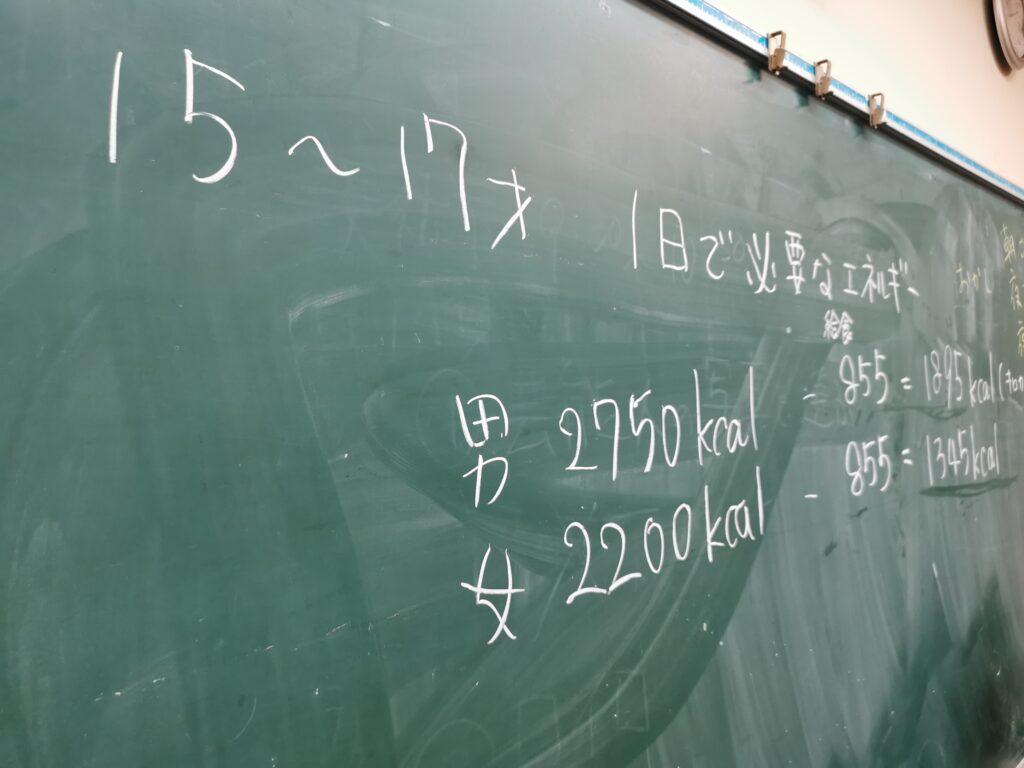 15～17才 1日で必要なエネルギー
給食
男 2750kcal - 855 = 1895kcal
女 2200kcal - 855 = 1345kcal
おかし